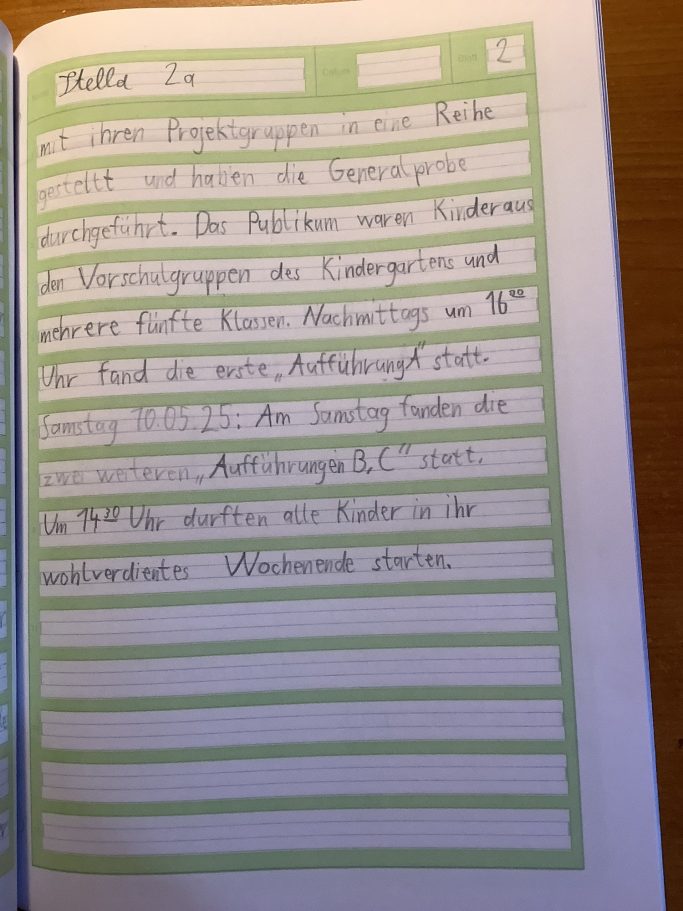 Stella 2a Datum Blatt 2
mit ihren Projektgruppen in eine Reihe
gestellt und haben die Generalprobe
durchgeführt. Das Publikum waren Kinder aus
den Vorschulgruppen des Kindergartens und
mehrere fünfte Klassen. Nachmittags um 16⁰⁰
Uhr fand die erste „Aufführung A" statt.
Samstag 10.05.25: Am Samstag fanden die
zwei weiteren „Aufführungen B, C" statt.
Um 14³⁰ Uhr durften alle Kinder in ihr
wohlverdientes Wochenende starten.